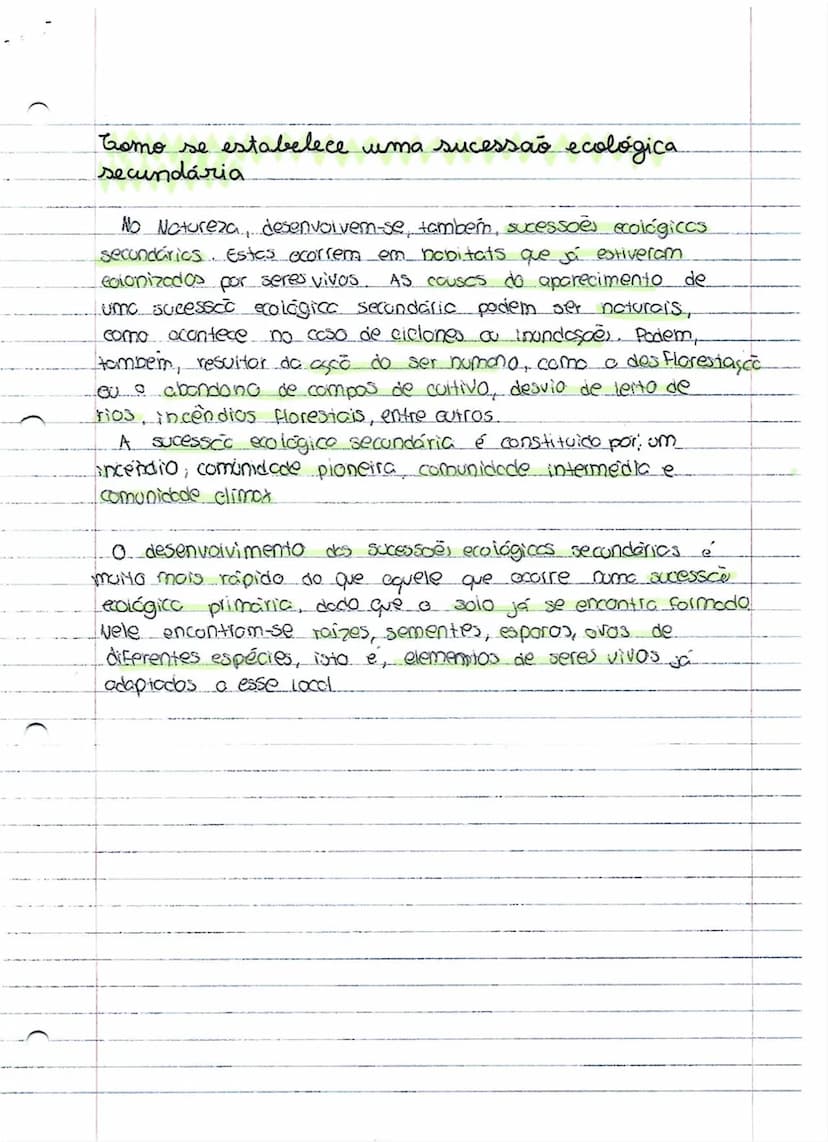 Como se estabelece uma sucessão ecológica
secundária
Na Natureza, desenvolvem-se, também, sucessões ecológicas
secundárias. Estas ocorrem em habitats que já estiveram
colonizados por seres vivos. As causas do aparecimento de
uma sucessão ecológica secundária podem ser naturais,
como acontece no caso de ciclones ou inundações. Podem,
também, resultar da ação do ser humano, como a desflorestação
ou o abandono de campos de cultivo, desvio de leito de
rios, incêndios florestais, entre outros.
A sucessão ecológica secundária é constituida por; um
incêndio, comunidade pioneira, comunidade intermédia e
comunidade clímax
O desenvolvimento das sucessões ecológicas secundárias é
muito mais rápido do que aquele que ocorre numa sucessão
ecológica primária, dado que o solo já se encontra formado
Nele encontram-se raízes, sementes, esporos, ovos de
diferentes espécies, isto é, elementos de seres vivos já
adaptados a esse local